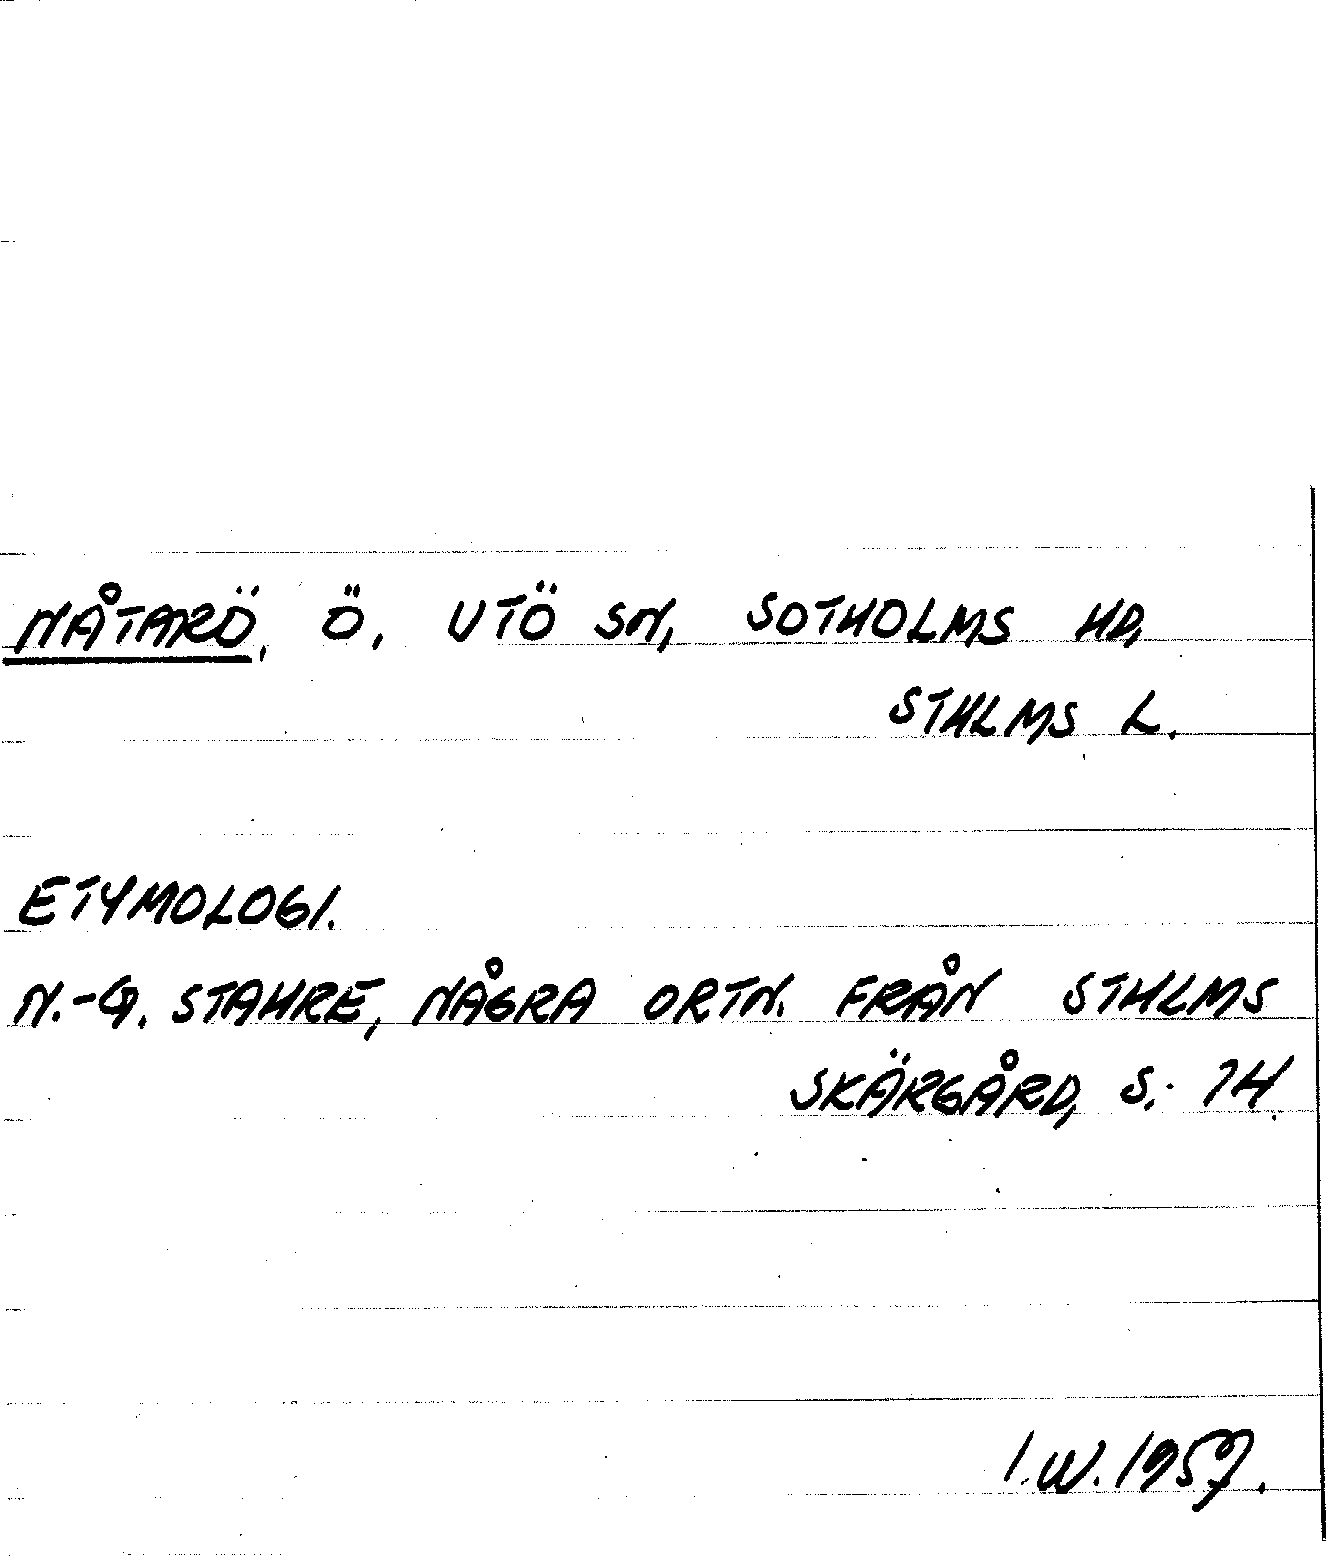 NÅTARÖ, Ö, UTÖ SN, SOTHOLMS HD,
STHLMS L.
ETYMOLOGI.
N.-G. STAHRE, NÅGRA ORTN. FRÅN STHLMS
SKÄRGÅRD, S. 74.
I.W. 1957.